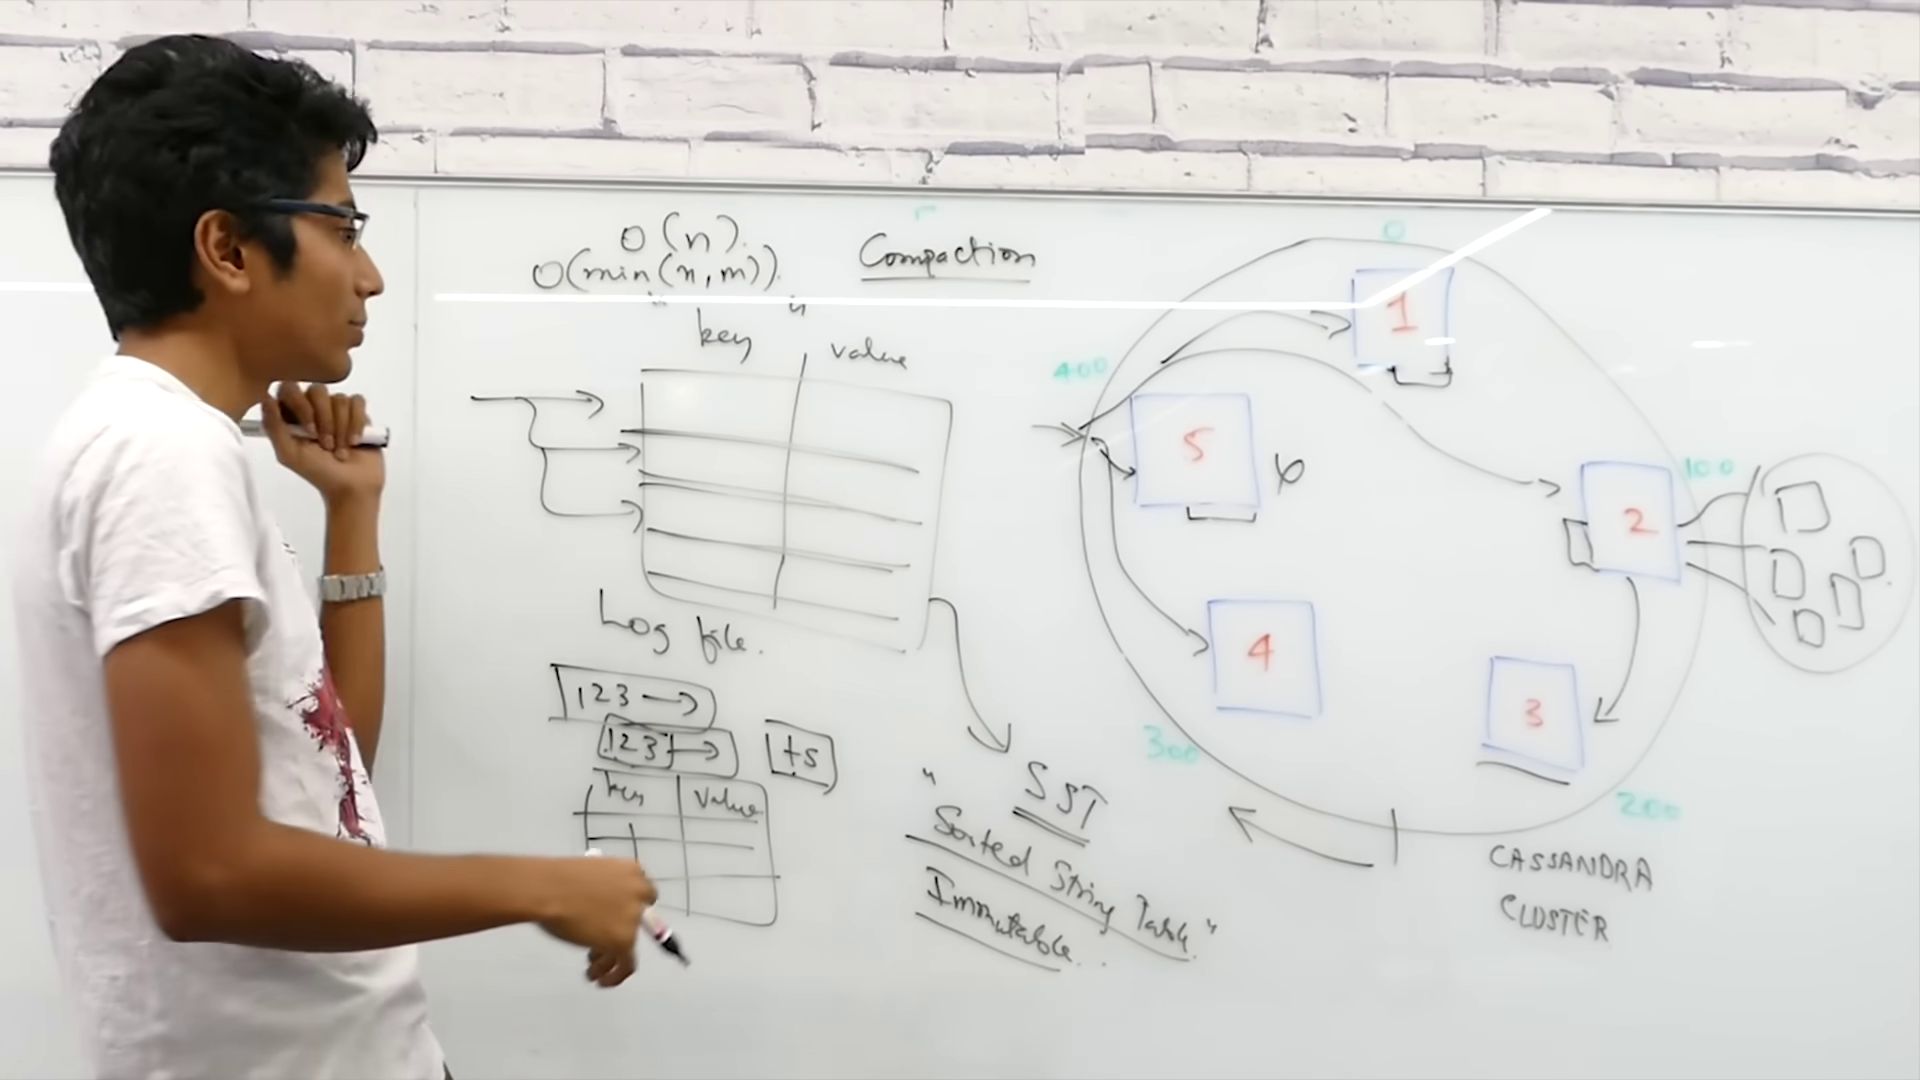 O(n).
O(min(n,m)).
Compaction
" "
key value
Log file.
123 →
123 → ts
key value
SST
"Sorted String Table"
Immutable..
0
1
400
5
100
2
4
3
300
200
CASSANDRA
CLUSTER